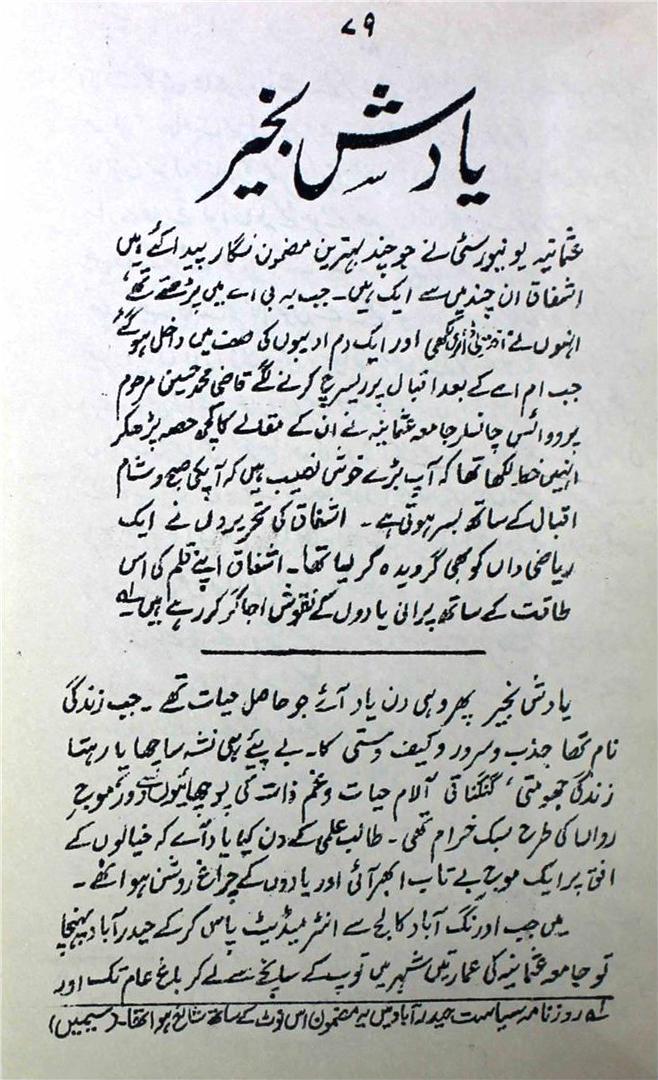 ۷۹
یادش بخیر
عثمانیہ یونیورسٹی نے جو چند بہترین مضمون نگار پیدا کئے ہیں
اشفاق ان چند میں سے ایک ہیں۔ جب یہ بی اے میں پڑھتے تھے
انھوں نے لکھی اور ایک دم ادیبوں کی صف میں داخل ہو گئے
جب ام اے کے بعد اقبال پر ریسرچ کرنے لگے قاضی محمد حسین مرحوم
پرووائس چانسلر جامعہ عثمانیہ نے ان کے مقالے کا کچھ حصہ پڑھکر
انہیں خط لکھا تھا کہ آپ بڑے خوش نصیب ہیں کہ آپکی صبح و شام
اقبال کے ساتھ بسر ہوتی ہے۔ اشفاق کی تحریروں نے ایک
ریاضی داں کو بھی گرویدہ کر لیا تھا۔ اشفاق اپنے قلم کی اس
طاقت کے ساتھ پرانی یادوں کے نقوش اجاگر کر رہے ہیں۔ لہ
یادش بخیر پھر وہی دن یاد آئے جو حاصل حیات تھے۔ جب زندگی
نام تھا جذب و سرور و کیف و مستی کا۔ بے پیئے ہی نشہ سا چھایا رہتا
زندگی جھومتی، گنگناتی آلام حیات و غم ذات کی پرچھائیوں سے دور، موجِ
رواں کی طرح سبک خرام تھی۔ طالب علمی کے دن کیا یاد آے کہ خیالوں کے
افق پر ایک موجِ بے تاب ابھر آئی اور یادوں کے چراغ روشن ہو اٹھے۔
میں جب اورنگ آباد کالج سے انٹرمیڈیٹ پاس کر کے حیدرآباد پہنچا
تو جامعہ عثمانیہ کی عمارتیں شہر میں توپ کے سانچے سے لے کر باغ عام تک اور
لہ روزنامہ سیاست حیدرآباد میں یہ مضمون اس نوٹ کے ساتھ شائع ہوا تھا۔